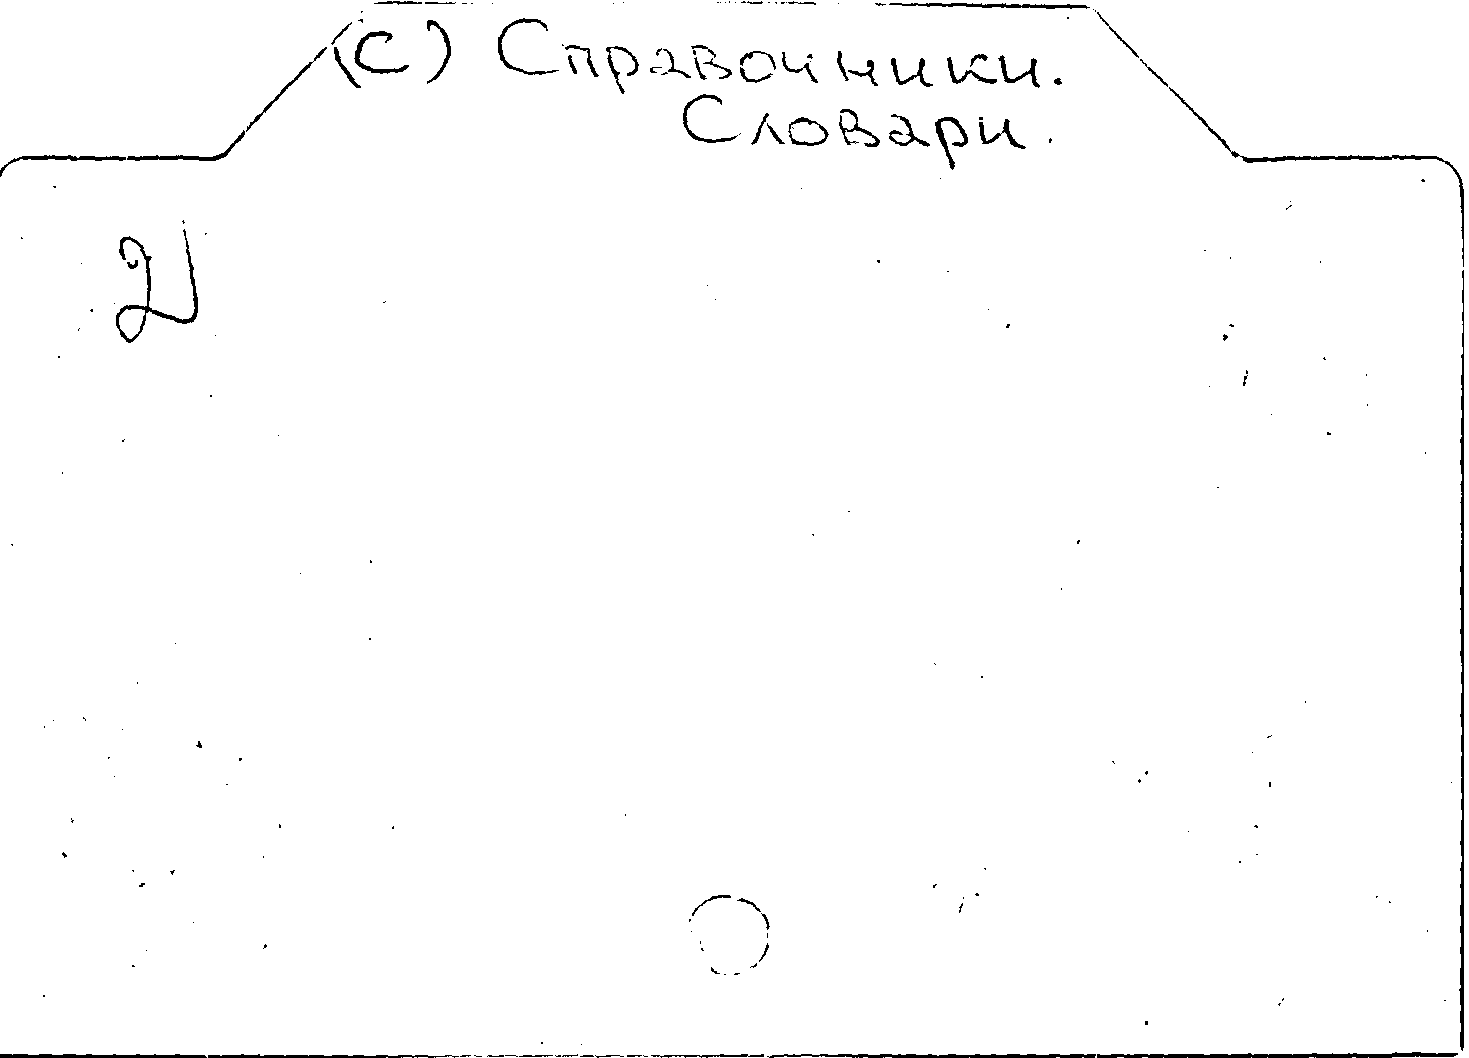 (С) Справочники.
Словари.
21